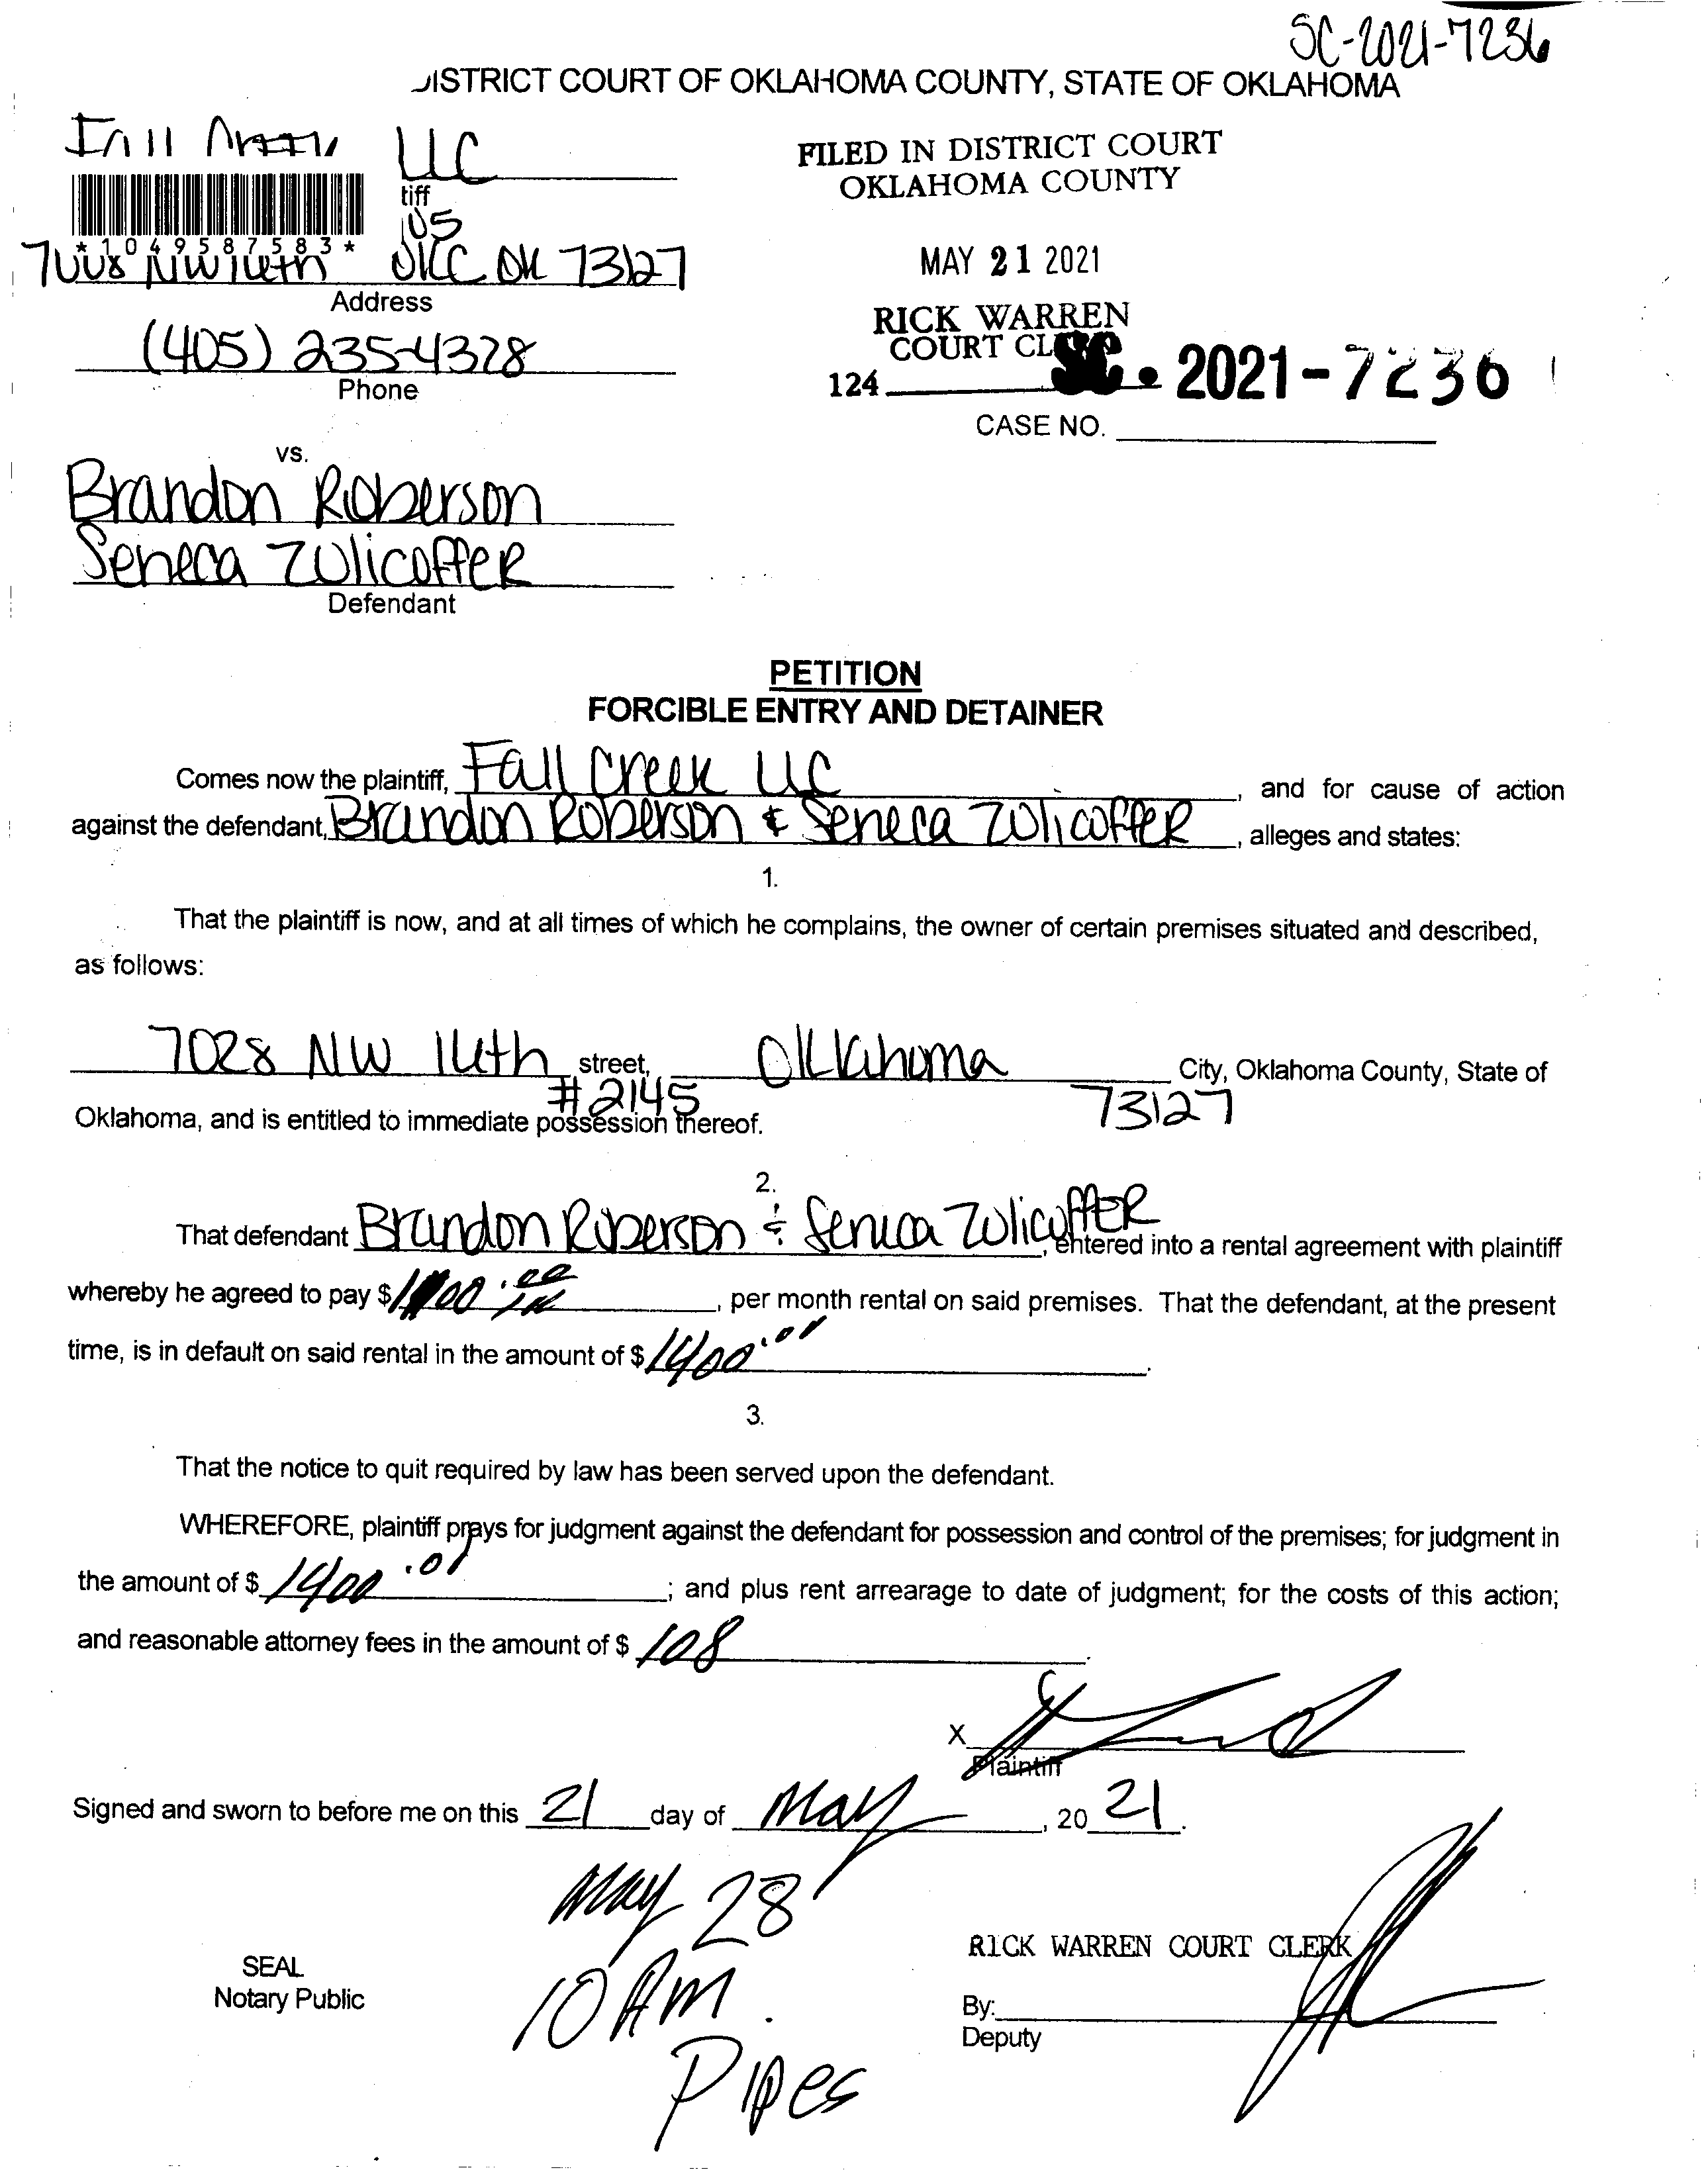 SC-2021-7236
DISTRICT COURT OF OKLAHOMA COUNTY, STATE OF OKLAHOMA
LLC
tiff
FILED IN DISTRICT COURT
OKLAHOMA COUNTY
*1049587583*
OKC OK 73127
Address
MAY 21 2021
(405) 235-4378
Phone
RICK WARREN
COURT CL
124
SC • 2021-7236
CASE NO.
vs.
Brandon Roberson
Seneca Zolicoffer
Defendant
PETITION
FORCIBLE ENTRY AND DETAINER
Comes now the plaintiff, Fall Creek LLC, and for cause of action
against the defendant, Brandon Roberson & Seneca Zolicoffer, alleges and states:
1.
That the plaintiff is now, and at all times of which he complains, the owner of certain premises situated and described,
as follows:
7028 NW 16th street, Oklahoma City, Oklahoma County, State of
#2145 73127
Oklahoma, and is entitled to immediate possession thereof.
2.
That defendant Brandon Roberson & Seneca Zolicoffer, entered into a rental agreement with plaintiff
whereby he agreed to pay $, per month rental on said premises. That the defendant, at the present
time, is in default on said rental in the amount of $1400.00.
3.
That the notice to quit required by law has been served upon the defendant.
WHEREFORE, plaintiff prays for judgment against the defendant for possession and control of the premises; for judgment in
the amount of $1400.00; and plus rent arrearage to date of judgment; for the costs of this action;
and reasonable attorney fees in the amount of $108.
X
Plaintiff
Signed and sworn to before me on this 21 day of May, 2021.
May 28
10 AM.
Pipes
SEAL
Notary Public
RICK WARREN COURT CLERK
By:
Deputy